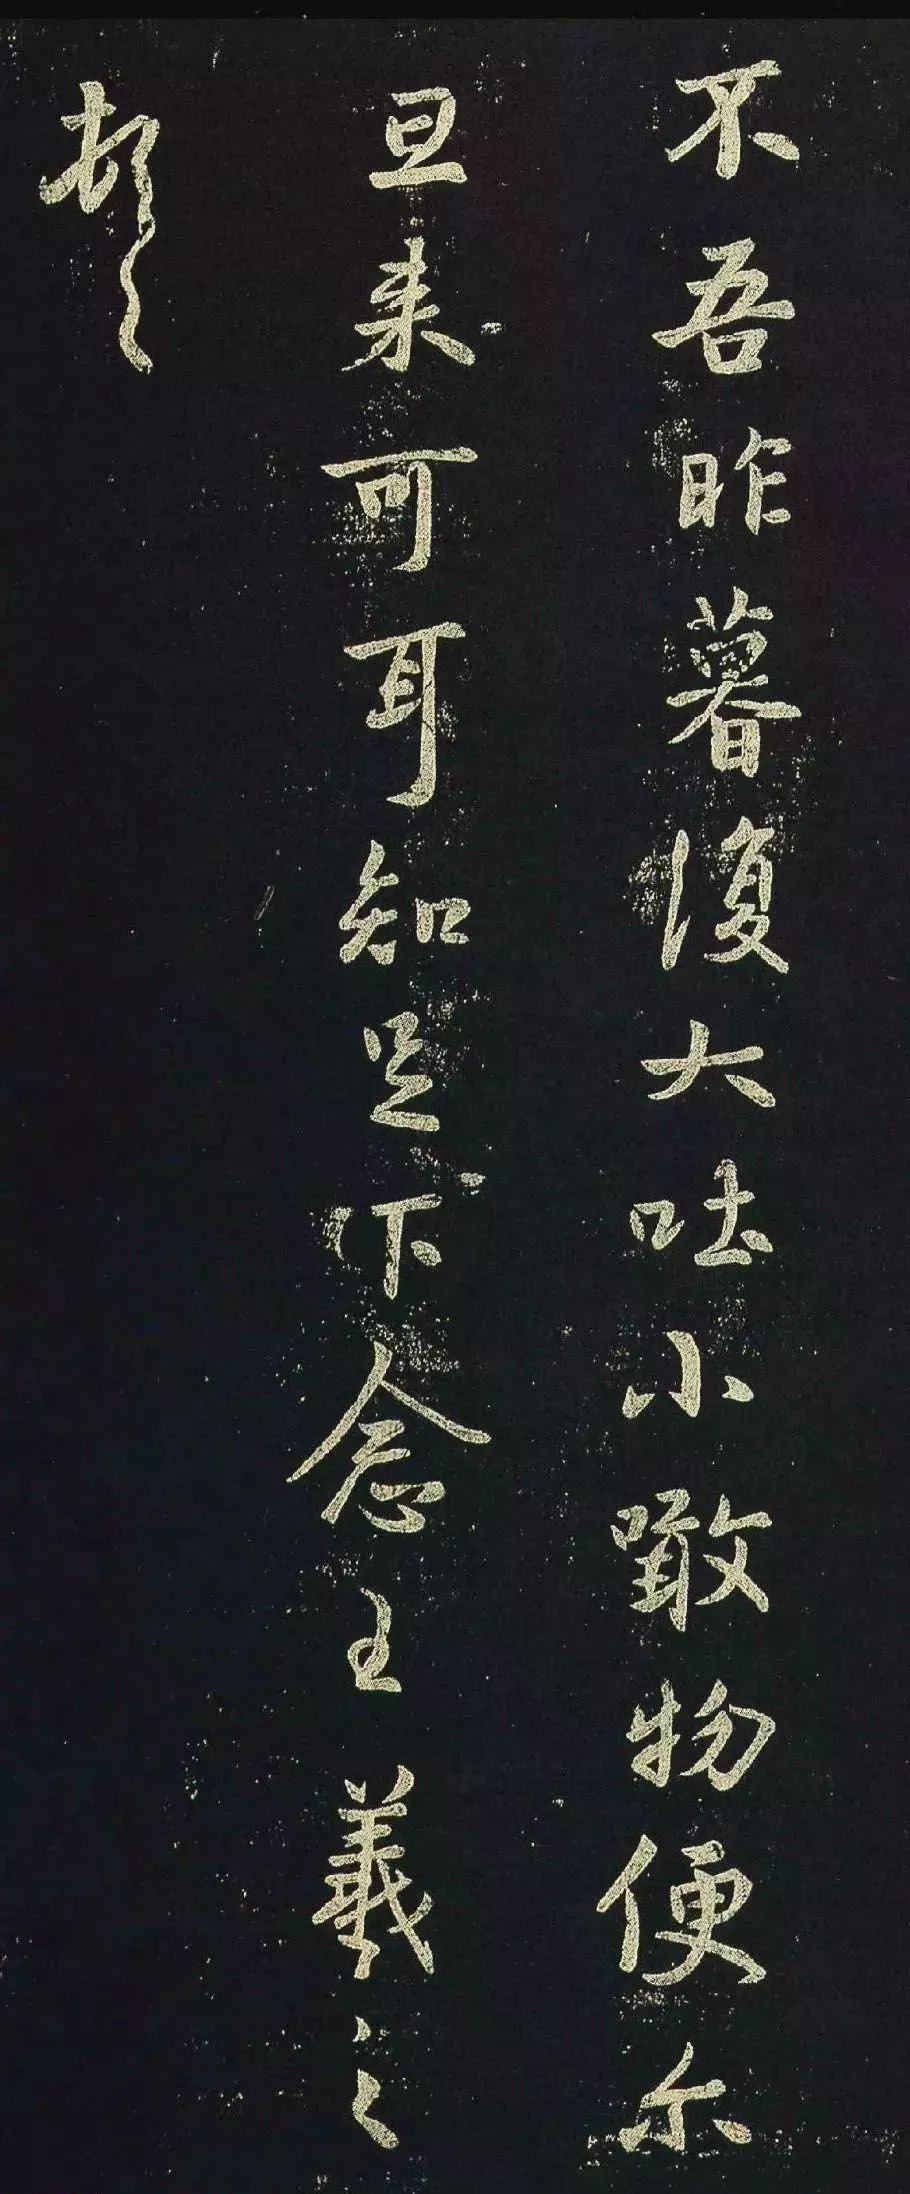 不吾昨暮復大吐小噉物便尔
旦来可耳知足下念王羲之
頓